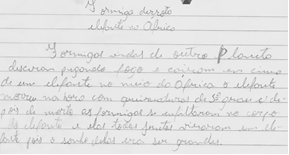 Formiga derrota
elefante na África
Formigas vindas de outro Planeta
desceram pegando fogo e caíram em cima
de um elefante no meio da África o elefante
morreu na hora com queimaduras de 3º grau e de
pois de morto as formigas se infiltraram no corpo
do elefante e elas todas juntas viraram um ele
fante pois o sonho delas era ser grandes.